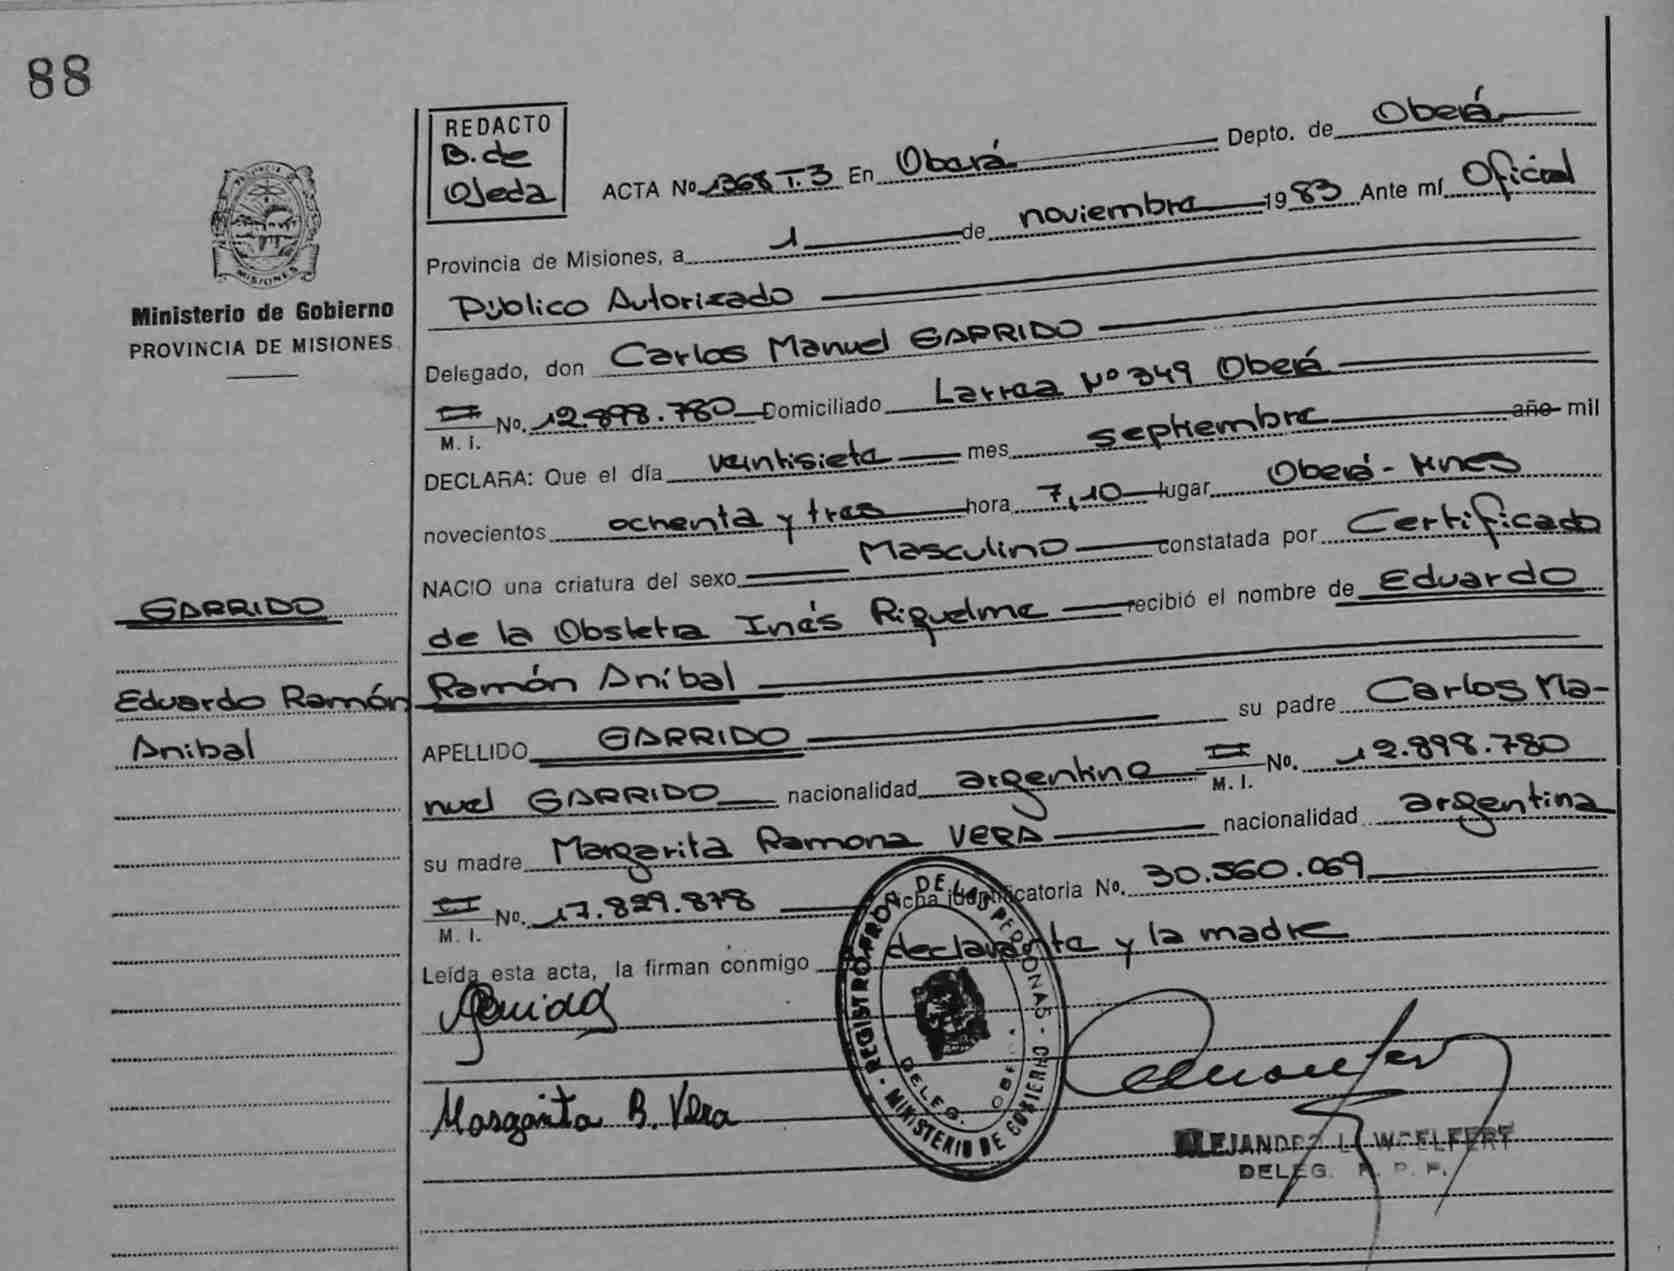 88
REDACTO
B. de
Ojeda
ACTA Nº 1368 T.3 En Oberá Depto. de Oberá
Provincia de Misiones, a 1 de noviembre 1983 Ante mí Oficial
Público Autorizado
Delegado, don Carlos Manuel GARRIDO
M. I. No. 12.898.780 Domiciliado Larrea Nº 349 Oberá
DECLARA: Que el día veintisiete mes septiembre año mil
novecientos ochenta y tres hora 7,10 lugar Oberá - Mnes
NACIO una criatura del sexo Masculino constatada por Certificado
de la Obstetra Inés Riquelme recibió el nombre de Eduardo
Ramón Aníbal
APELLIDO GARRIDO su padre Carlos Ma-
nuel GARRIDO nacionalidad argentino M. I. No. 12.898.780
su madre Margarita Ramona VERA nacionalidad argentina
M. I. No. 17.829.878 Ficha identificatoria No. 30.560.069
Leída esta acta, la firman conmigo declarante y la madre
Margarita B. Vera
ALEJANDRO L. WOELFERT
DELEG. R. P. P.
PROVINCIA DE MISIONES
Ministerio de Gobierno
PROVINCIA DE MISIONES
GARRIDO
Eduardo Ramón
Anibal
REGISTRO PROV. DE LAS PERSONAS - MINISTERIO DE GOBIERNO -
DELEG. OBERA